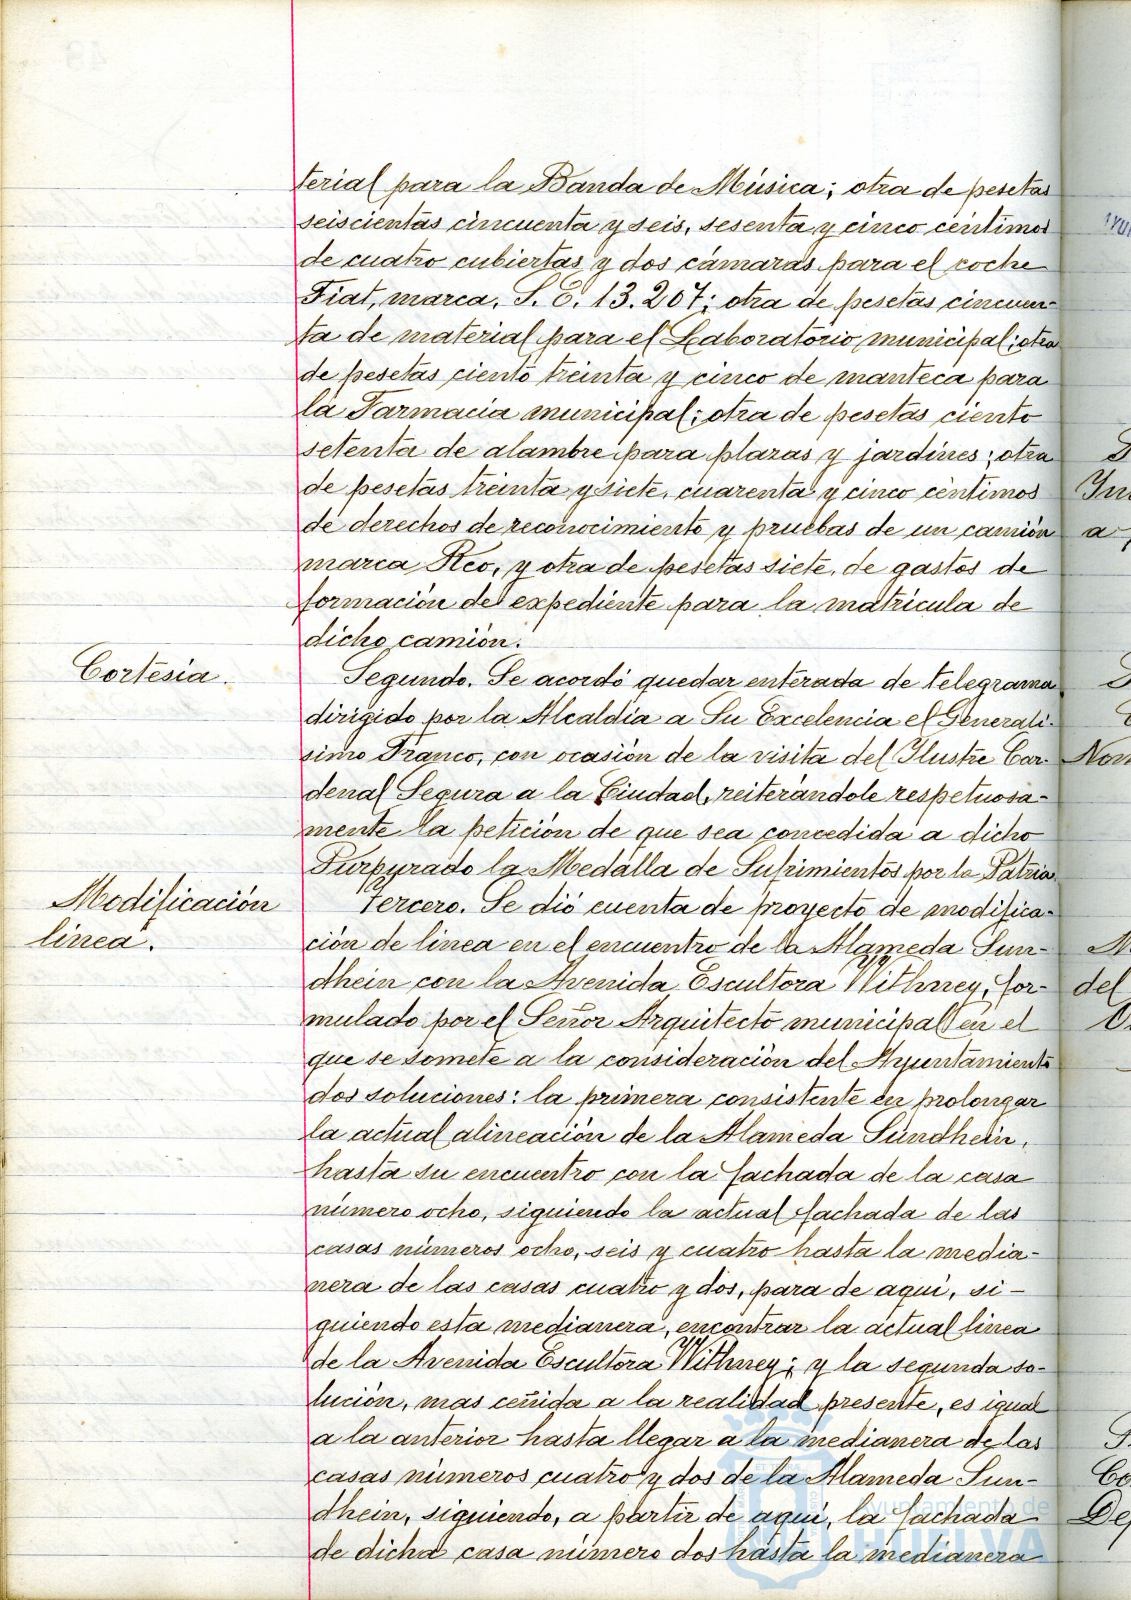 terial para la Banda de Música; otra de pesetas
seiscientas cincuenta y seis, sesenta y cinco céntimos
de cuatro cubiertas y dos cámaras para el coche
Fiat, marca, S. E. 13.207; otra de pesetas cincuen-
ta de material para el Laboratorio municipal; otra
de pesetas ciento treinta y cinco de manteca para
la Farmacia municipal; otra de pesetas ciento
setenta de alambre para plazas y jardines; otra
de pesetas treinta y siete, cuarenta y cinco céntimos
de derechos de reconocimiento y pruebas de un camión
marca Reo, y otra de pesetas siete, de gastos de
formación del expediente para la matrícula de
dicho camión.
Cortesía.
Segundo. Se acordó quedar enterada de telegrama
dirigido por la Alcaldía a Su Excelencia el Generalí-
simo Franco, con ocasión de la visita del Ilustre Car-
denal Segura a la Ciudad, reiterándole respetuosa-
mente la petición de que sea concedida a dicho
Purpurado la Medalla de Sufrimientos por la Patria.
Modificación
línea.
Tercero. Se dió cuenta de proyecto de modifica-
ción de línea en el encuentro de la Alameda Sun-
dhein con la Avenida Escultora Withney, for-
mulado por el Señor Arquitecto municipal en el
que se somete a la consideración del Ayuntamiento
dos soluciones: la primera consistente en prolongar
la actual alineación de la Alameda Sundhein,
hasta su encuentro con la fachada de la casa
número ocho, siguiendo la actual fachada de las
casas números ocho, seis y cuatro hasta la media-
nera de las casas cuatro y dos, para de aquí, si-
guiendo esta medianera, encontrar la actual línea
de la Avenida Escultora Withney; y la segunda so-
lución, mas ceñida a la realidad presente, es igual
a la anterior hasta llegar a la medianera de las
casas números cuatro y dos de la Alameda Sun-
dhein, siguiendo, a partir de aquí, la fachada
de dicha casa número dos hasta la medianera
Ayuntamiento de
HUELVA